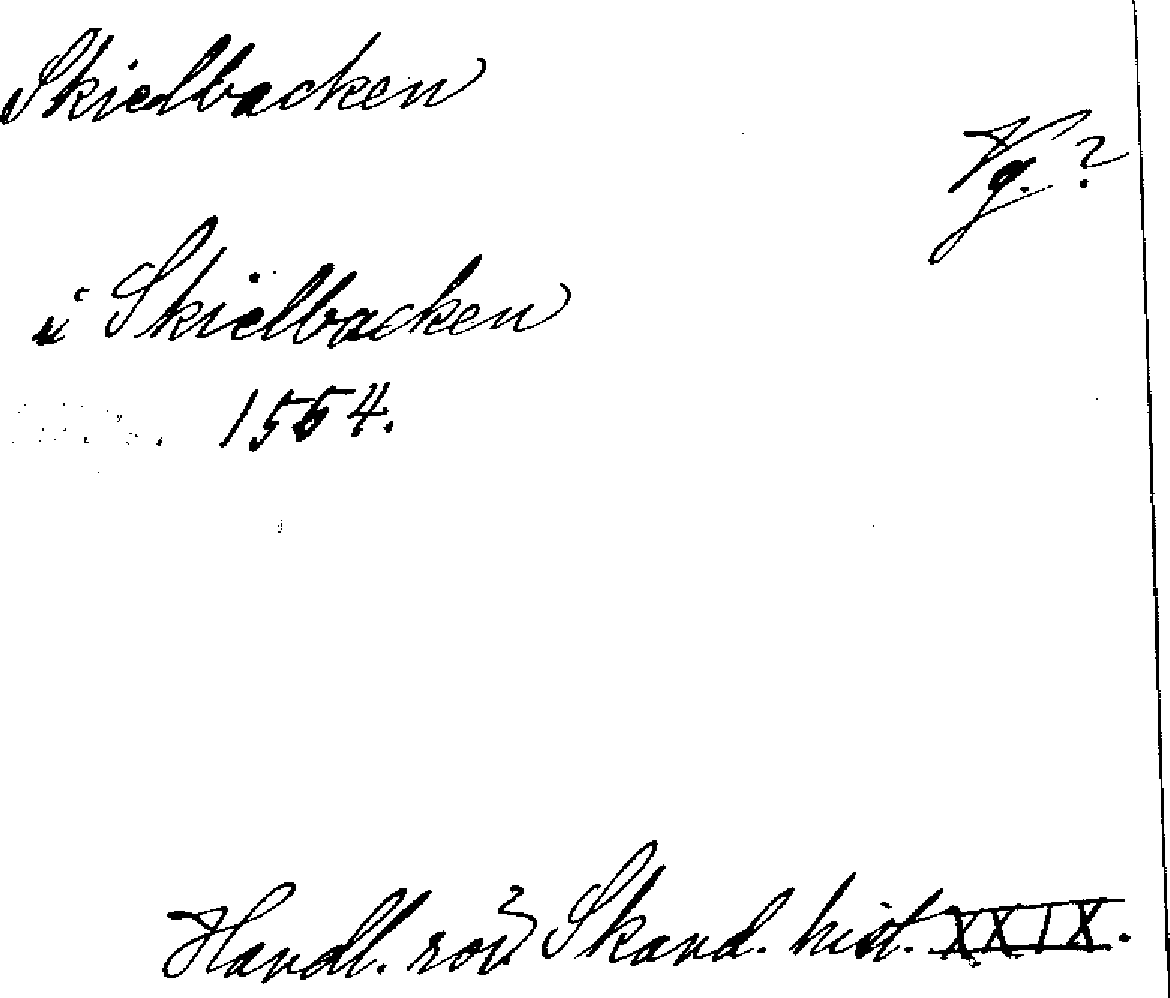 Skielbacken
Vg.?
i Skielbacken
1554.
Handl. rör Skand. hist. XXIX.